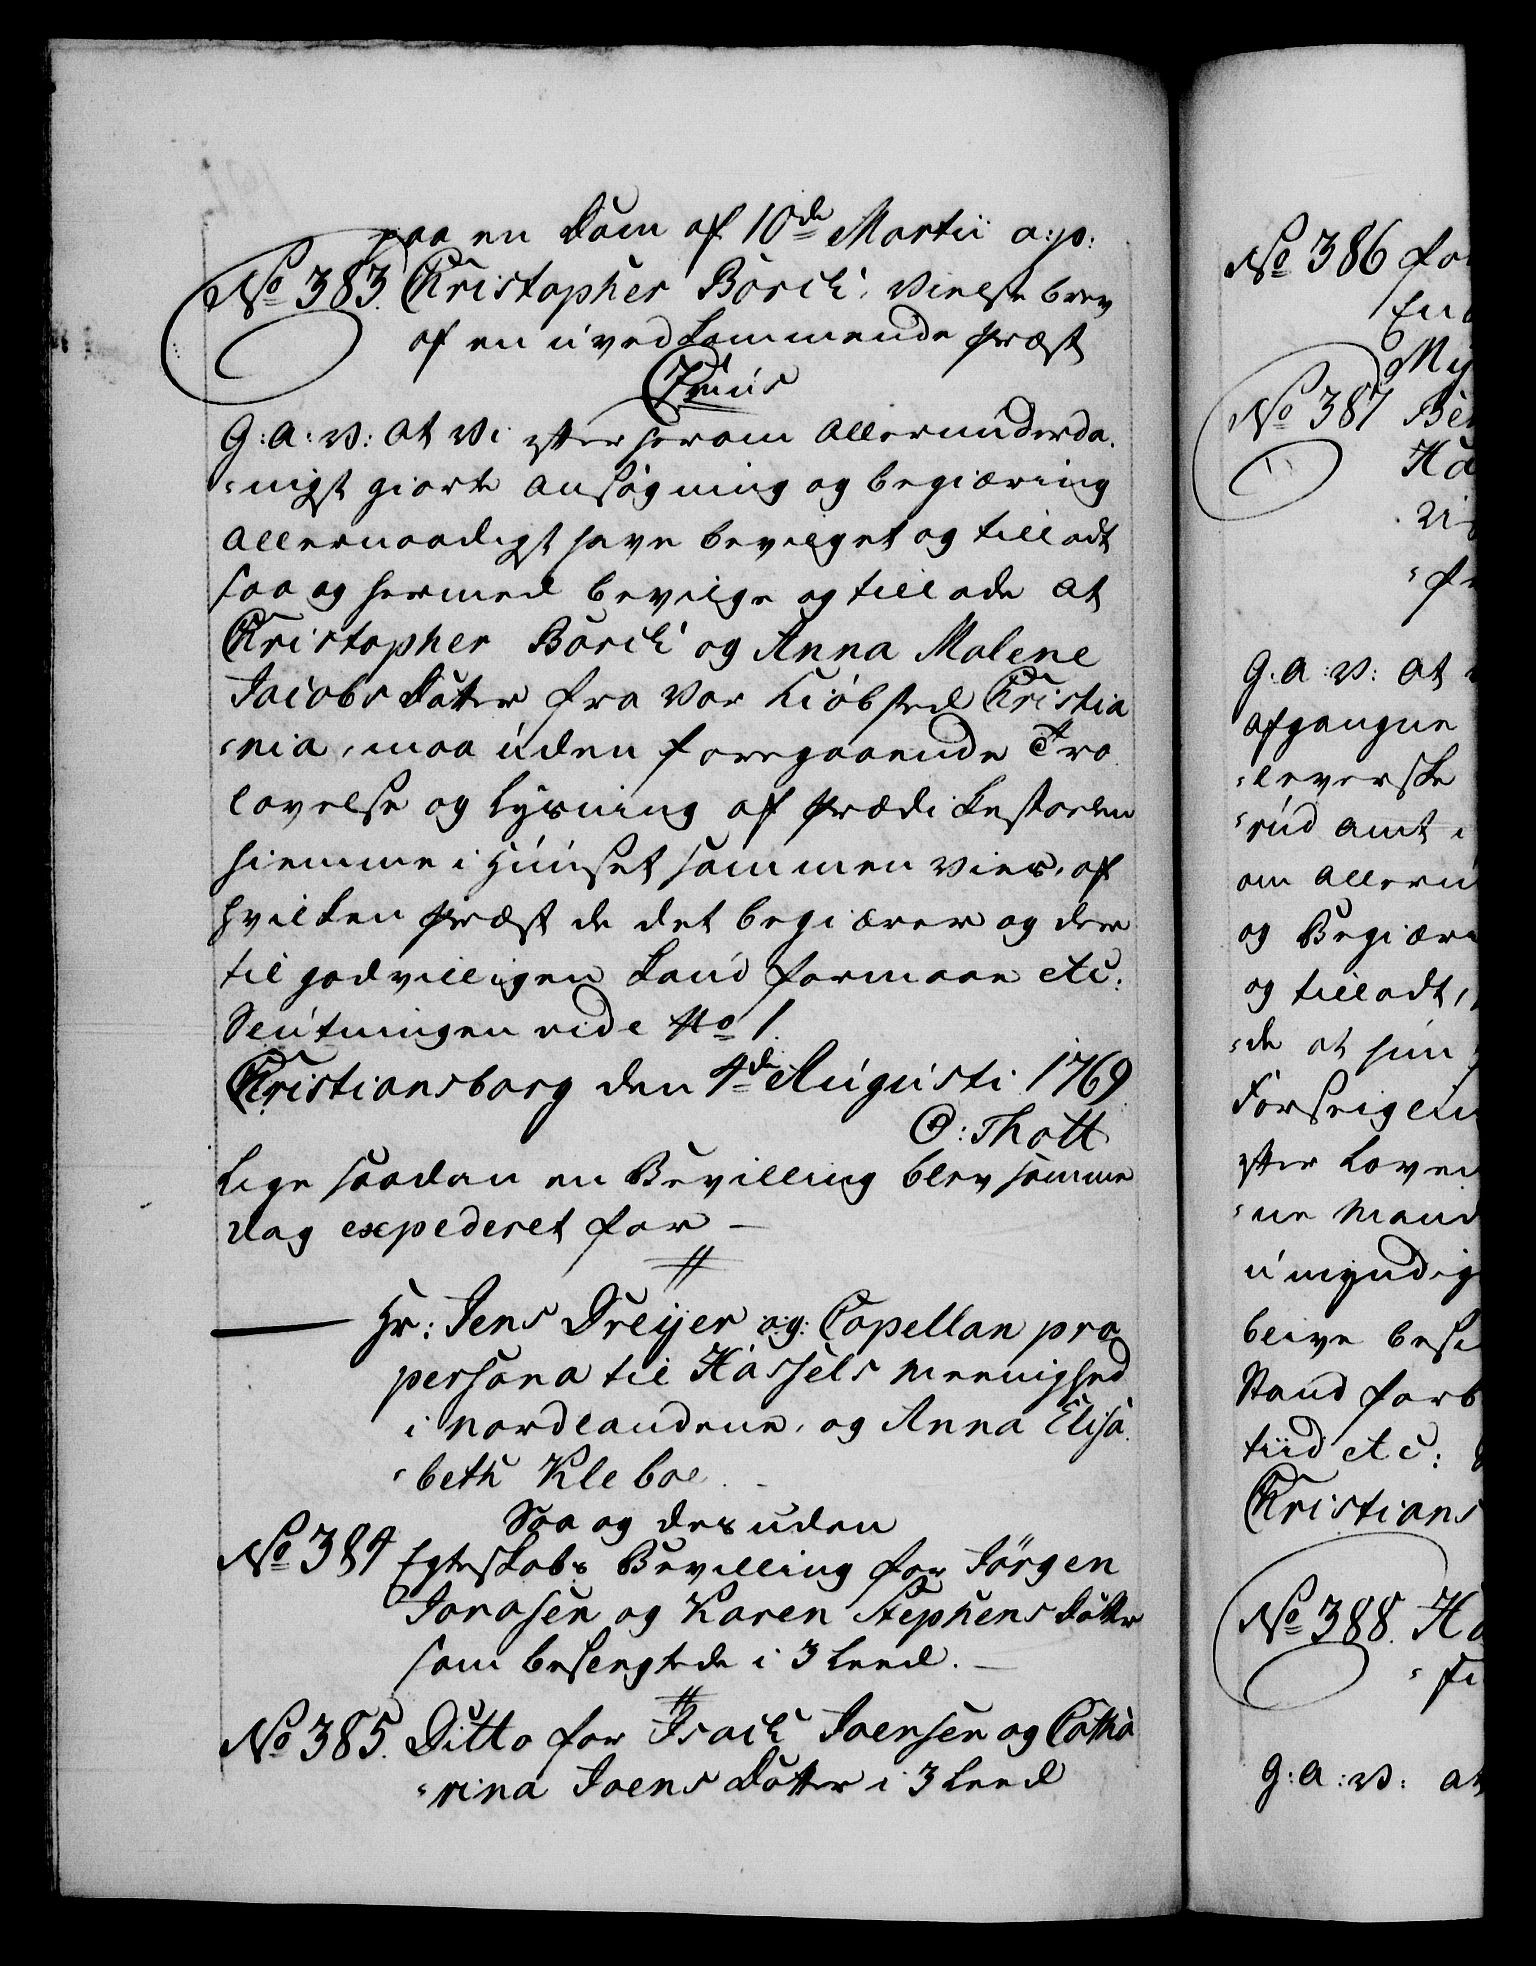 paa en Dom af 10de Martii a:p:
No 383. Christopher Borch, Vielse brev
af en uvedkommende Præst
G: A: V: At Vi efter herom Allerunderda-
=nigst giorte Ansögning og begiæring
Allernaadigst have bevilget og tilladt
saa og hermed bevilge og tillade At
Christopher Borch og Anna Malene
Jacobs Datter fra Vor Kiöbsted Christia
=nia, maa uden foregaaende Tro
lovelse og Lysning af Prædikestolen
hiemme i Huuset sammen vies, af
hvilken Præst de det begiærer og der
til godvilligen kand formaae etc:
Slutningen vide No 1.
Christiansborg den 4de Augusti 1769
O: Thott
Lige saadan en Bevilling blev samme
Dag expederet for —
Hr: Jens Dreyer og Capellan pro
persona til Hassels Meenighed
i Nordlandene, og Anna Elisa
=beth Kleboe.
Saa og desuden
No 384 Egteskabs Bevilling for Jörgen
Jonasen og Karen Stephens Datter
som beslegtede i 3 Leed. —
No 385. Ditto for Isach Joensen og Catha
=rina Joens Datter i 3 Leed
No 386 for
No 387
G: A: V: At
afgangne
=leverske
=rud Amt i
om Alleru
og Begiær
og tilladt,
=de at hun
efter Loven
=ne Mand
umyndig
blive besi
Stand forb
tiid etc:
Christians
No 388.
G: A: V: at